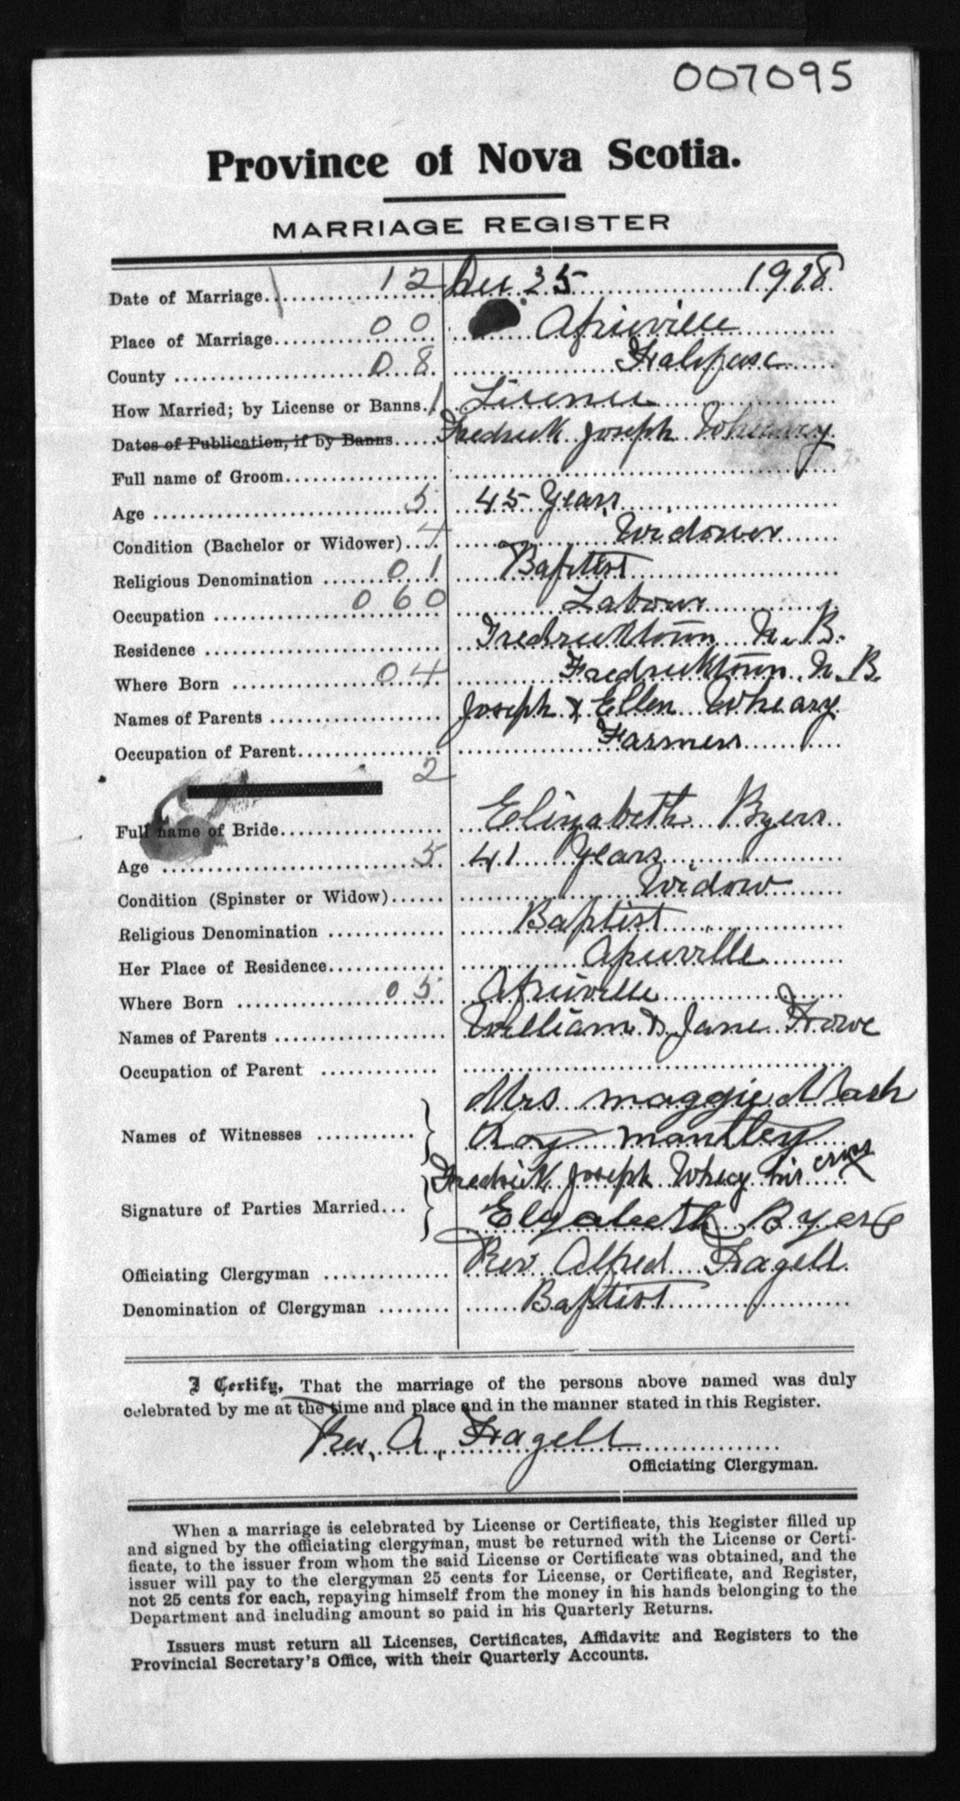 007095
Province of Nova Scotia.
MARRIAGE REGISTER
Date of Marriage 12 Dec 25 1918
Place of Marriage 00 Africville
County 08 Halifax
How Married; by License or Banns 1 License
Dates of Publication, if by Banns Fredrick Joseph Wheary
Full name of Groom
Age 5 45 Years
Condition (Bachelor or Widower) 4 Widower
Religious Denomination 01 Baptist
Occupation 060 Labour
Residence Fredricktown N.B.
Where Born 04 Fredricktown N.B
Names of Parents Joseph & Ellen Wheary
Occupation of Parent Farmer
2
Full name of Bride Elizabeth Byers
Age 5 41 Years
Condition (Spinster or Widow) Widow
Religious Denomination Baptist
Her Place of Residence Africville
Where Born 05 Africville
Names of Parents William & Jane Howe
Occupation of Parent
Names of Witnesses Mrs maggie
Roy mantley
Signature of Parties Married Fredrick Joseph his
Byers
Officiating Clergyman Rev Alfred
Denomination of Clergyman Baptist
I Certify, That the marriage of the persons above named was duly
celebrated by me at the time and place and in the manner stated in this Register.
Rev, A,
Officiating Clergyman.
When a marriage is celebrated by License or Certificate, this Register filled up
and signed by the officiating clergyman, must be returned with the License or Certi-
ficate, to the issuer from whom the said License or Certificate was obtained, and the
issuer will pay to the clergyman 25 cents for License, or Certificate, and Register,
not 25 cents for each, repaying himself from the money in his hands belonging to the
Department and including amount so paid in his Quarterly Returns.
Issuers must return all Licenses, Certificates, Affidavits and Registers to the
Provincial Secretary's Office, with their Quarterly Accounts.